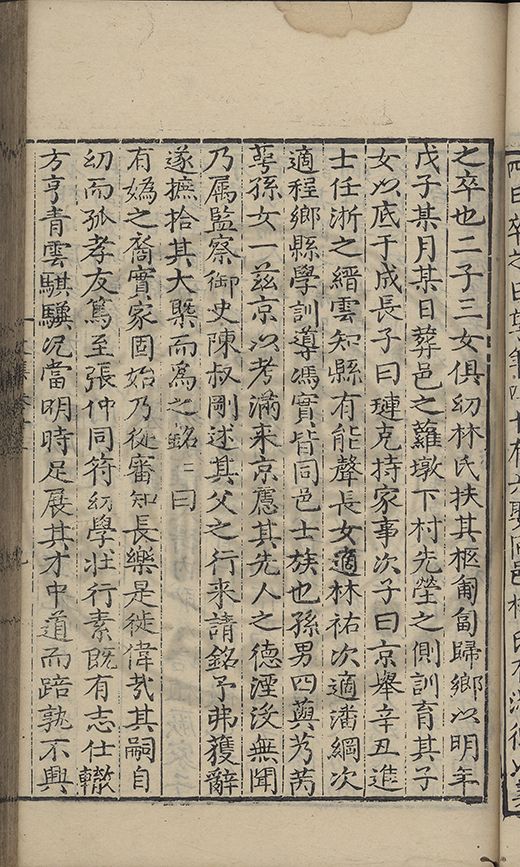 之卒也二子三女俱幼林氏扶其柩匍匐歸鄉以明年
戊子某月某日葬邑之蘿墩下村先塋之側訓育其子
女以底于成長子曰璉克持家事次子曰京舉辛丑進
士任浙之縉雲知縣有能聲長女適林祐次適潘綱次
適程鄉縣學訓導馮實皆同邑士族也孫男四輿艿芮
萼孫女一茲京以考滿來京慮其先人之德湮沒無聞
乃屬監察御史陳叔剛述其父之行來請銘予弗獲辭
遂摭拾其大槩而為之銘銘曰
有媯之裔實家固始乃從審知長樂是徙偉哉其嗣自
幼而孤孝友篤至張仲同符幼學壯行素既有志仕轍
方亨青雲騏驥况當明時足展其才中道而踣孰不興